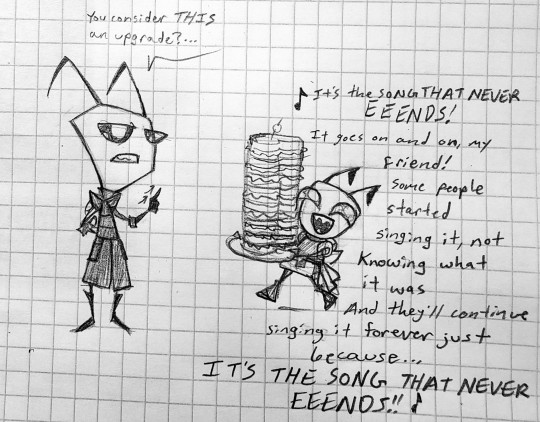 You consider THIS
an upgrade?...
♪ It's the SONG THAT NEVER
EEENDS!
It goes on and on, my
friend!
Some people
started
singing it, not
Knowing what
it was
And they'll continue
singing it forever just
because...
IT'S THE SONG THAT NEVER
EEENDS!! ♪